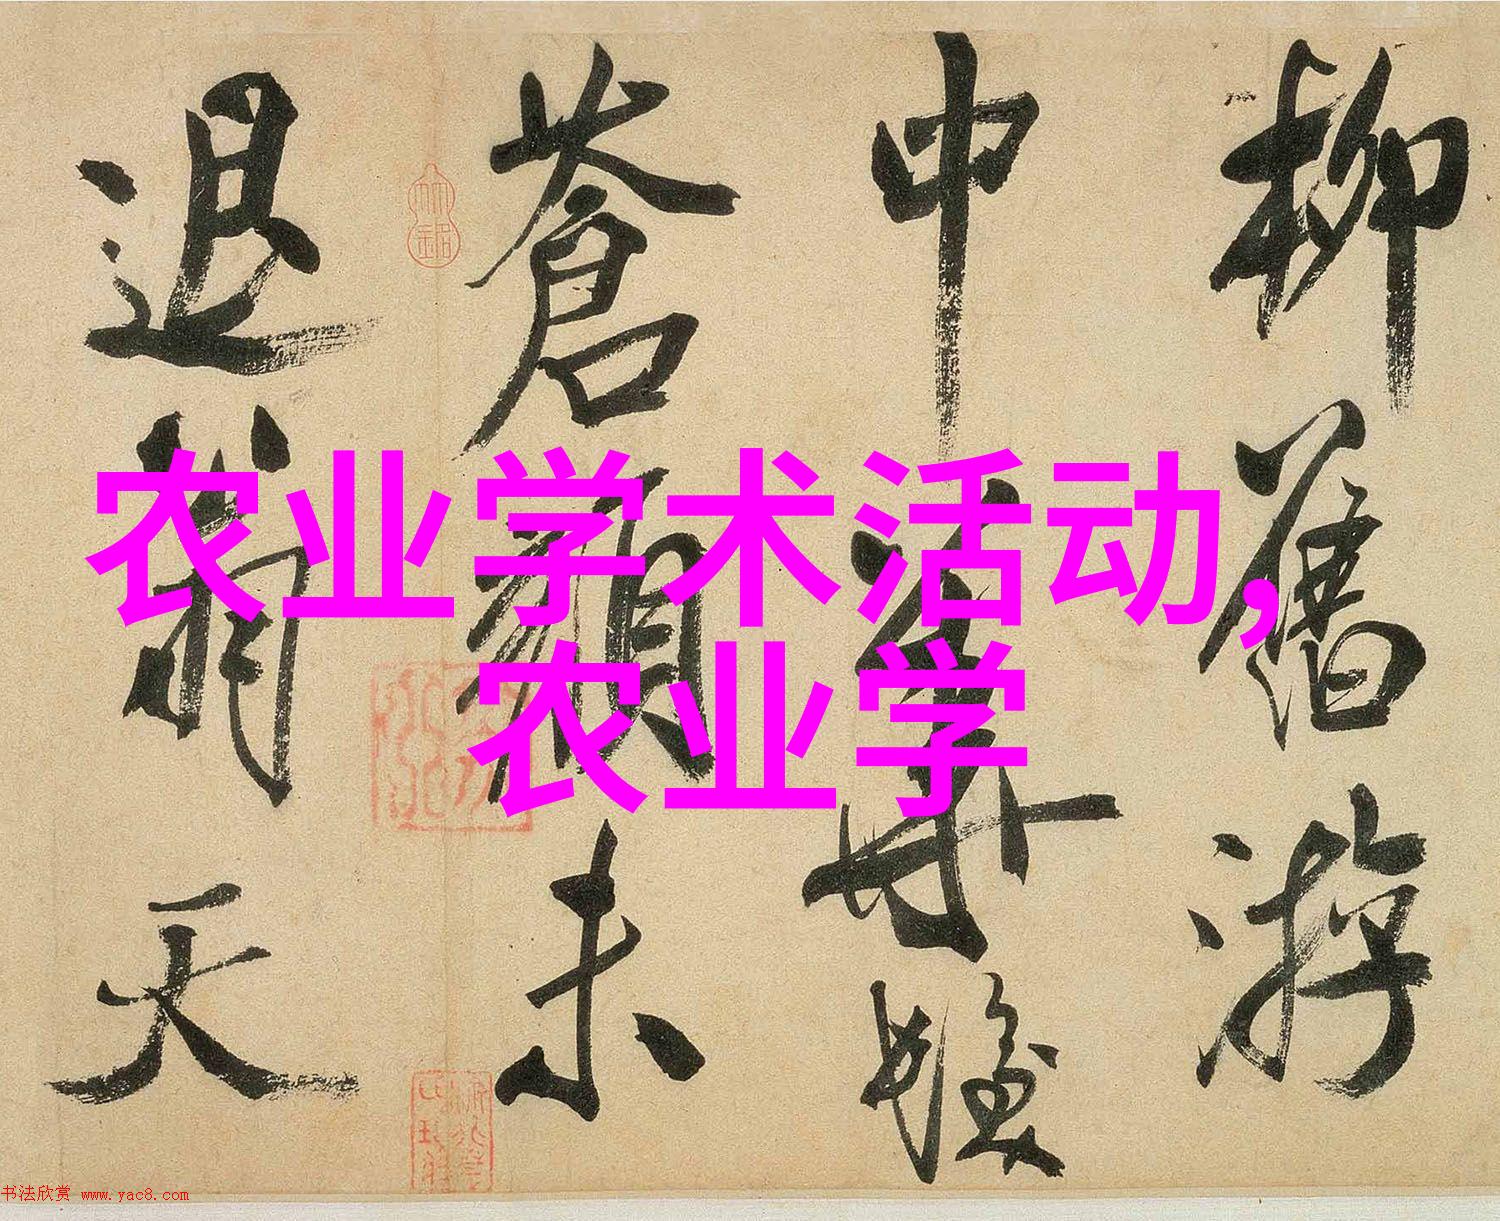 农业学术活动,
农业学
柳舊游
中華髮
蒼顏未
退翁天
书法欣赏 www.yac8.com